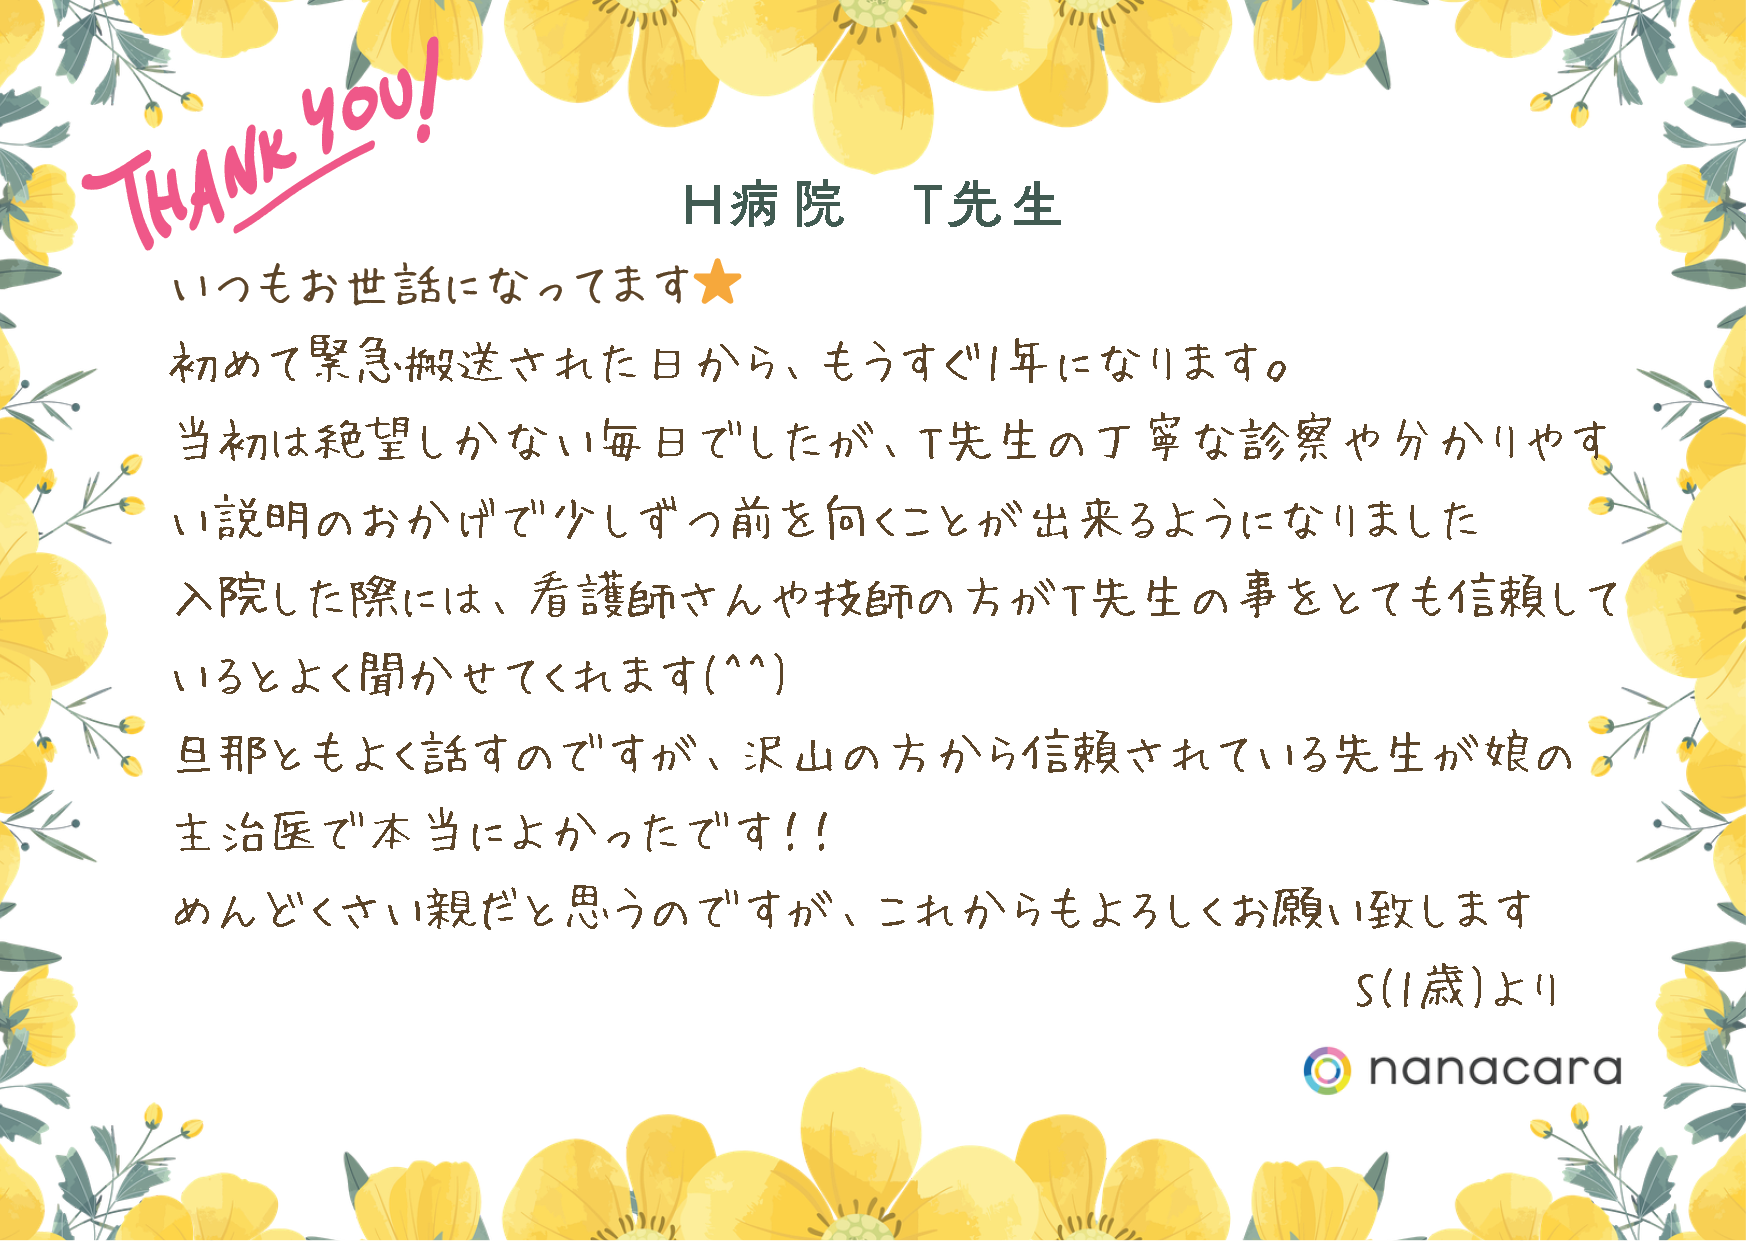 THANK YOU!
H病院　T先生
いつもお世話になってます★
初めて緊急搬送された日から、もうすぐ1年になります。
当初は絶望しかない毎日でしたが、T先生の丁寧な診察や分かりやす
い説明のおかげで少しずつ前を向くことが出来るようになりました
入院した際には、看護師さんや技師の方がT先生の事をとても信頼して
いるとよく聞かせてくれます(^^)
旦那ともよく話すのですが、沢山の方から信頼されている先生が娘の
主治医で本当によかったです!!
めんどくさい親だと思うのですが、これからもよろしくお願い致します
S(1歳)より
nanacara